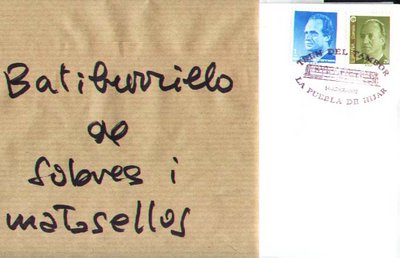 Batiburrillo
de
sobres i
matasellos
TREN DEL TAMBOR
LA PUEBLA DE HIJAR